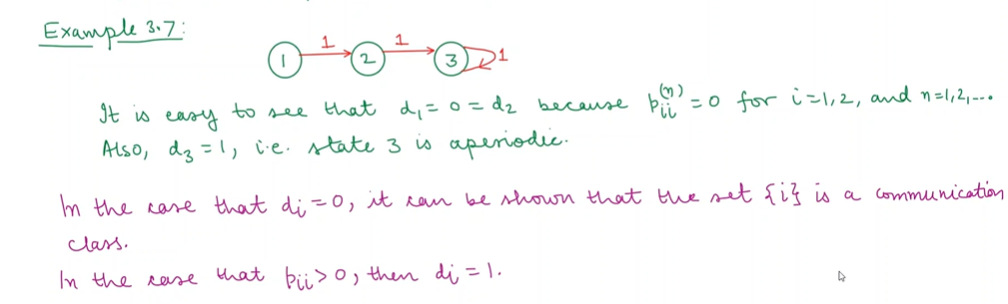 Example 3.7:
1 1
1 2 3 1
It is easy to see that d₁ = 0 = d₂ because p_{ii}^{(n)} = 0 for i=1,2, and n=1,2,...
Also, d₃ = 1, i.e. state 3 is aperiodic.
In the case that d_i = 0, it can be shown that the set {i} is a communication
class.
In the case that p_{ii} > 0, then d_i = 1.